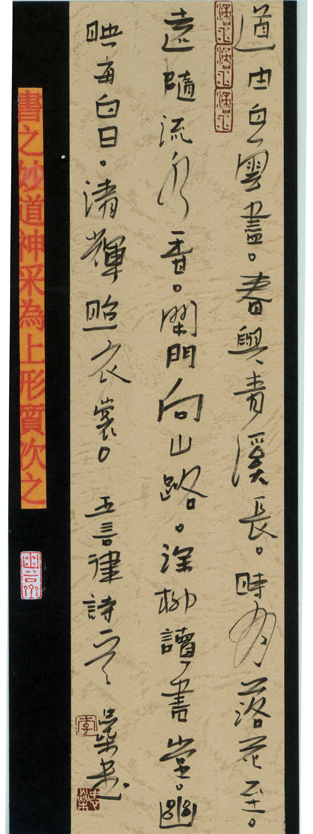 道由白雲盡。春與青溪長。時有落花至。
遠隨流水香。閑門向山路。深柳讀書堂。幽
映每白日。清輝照衣裳。五言律詩
書之妙道神采為上形質次之